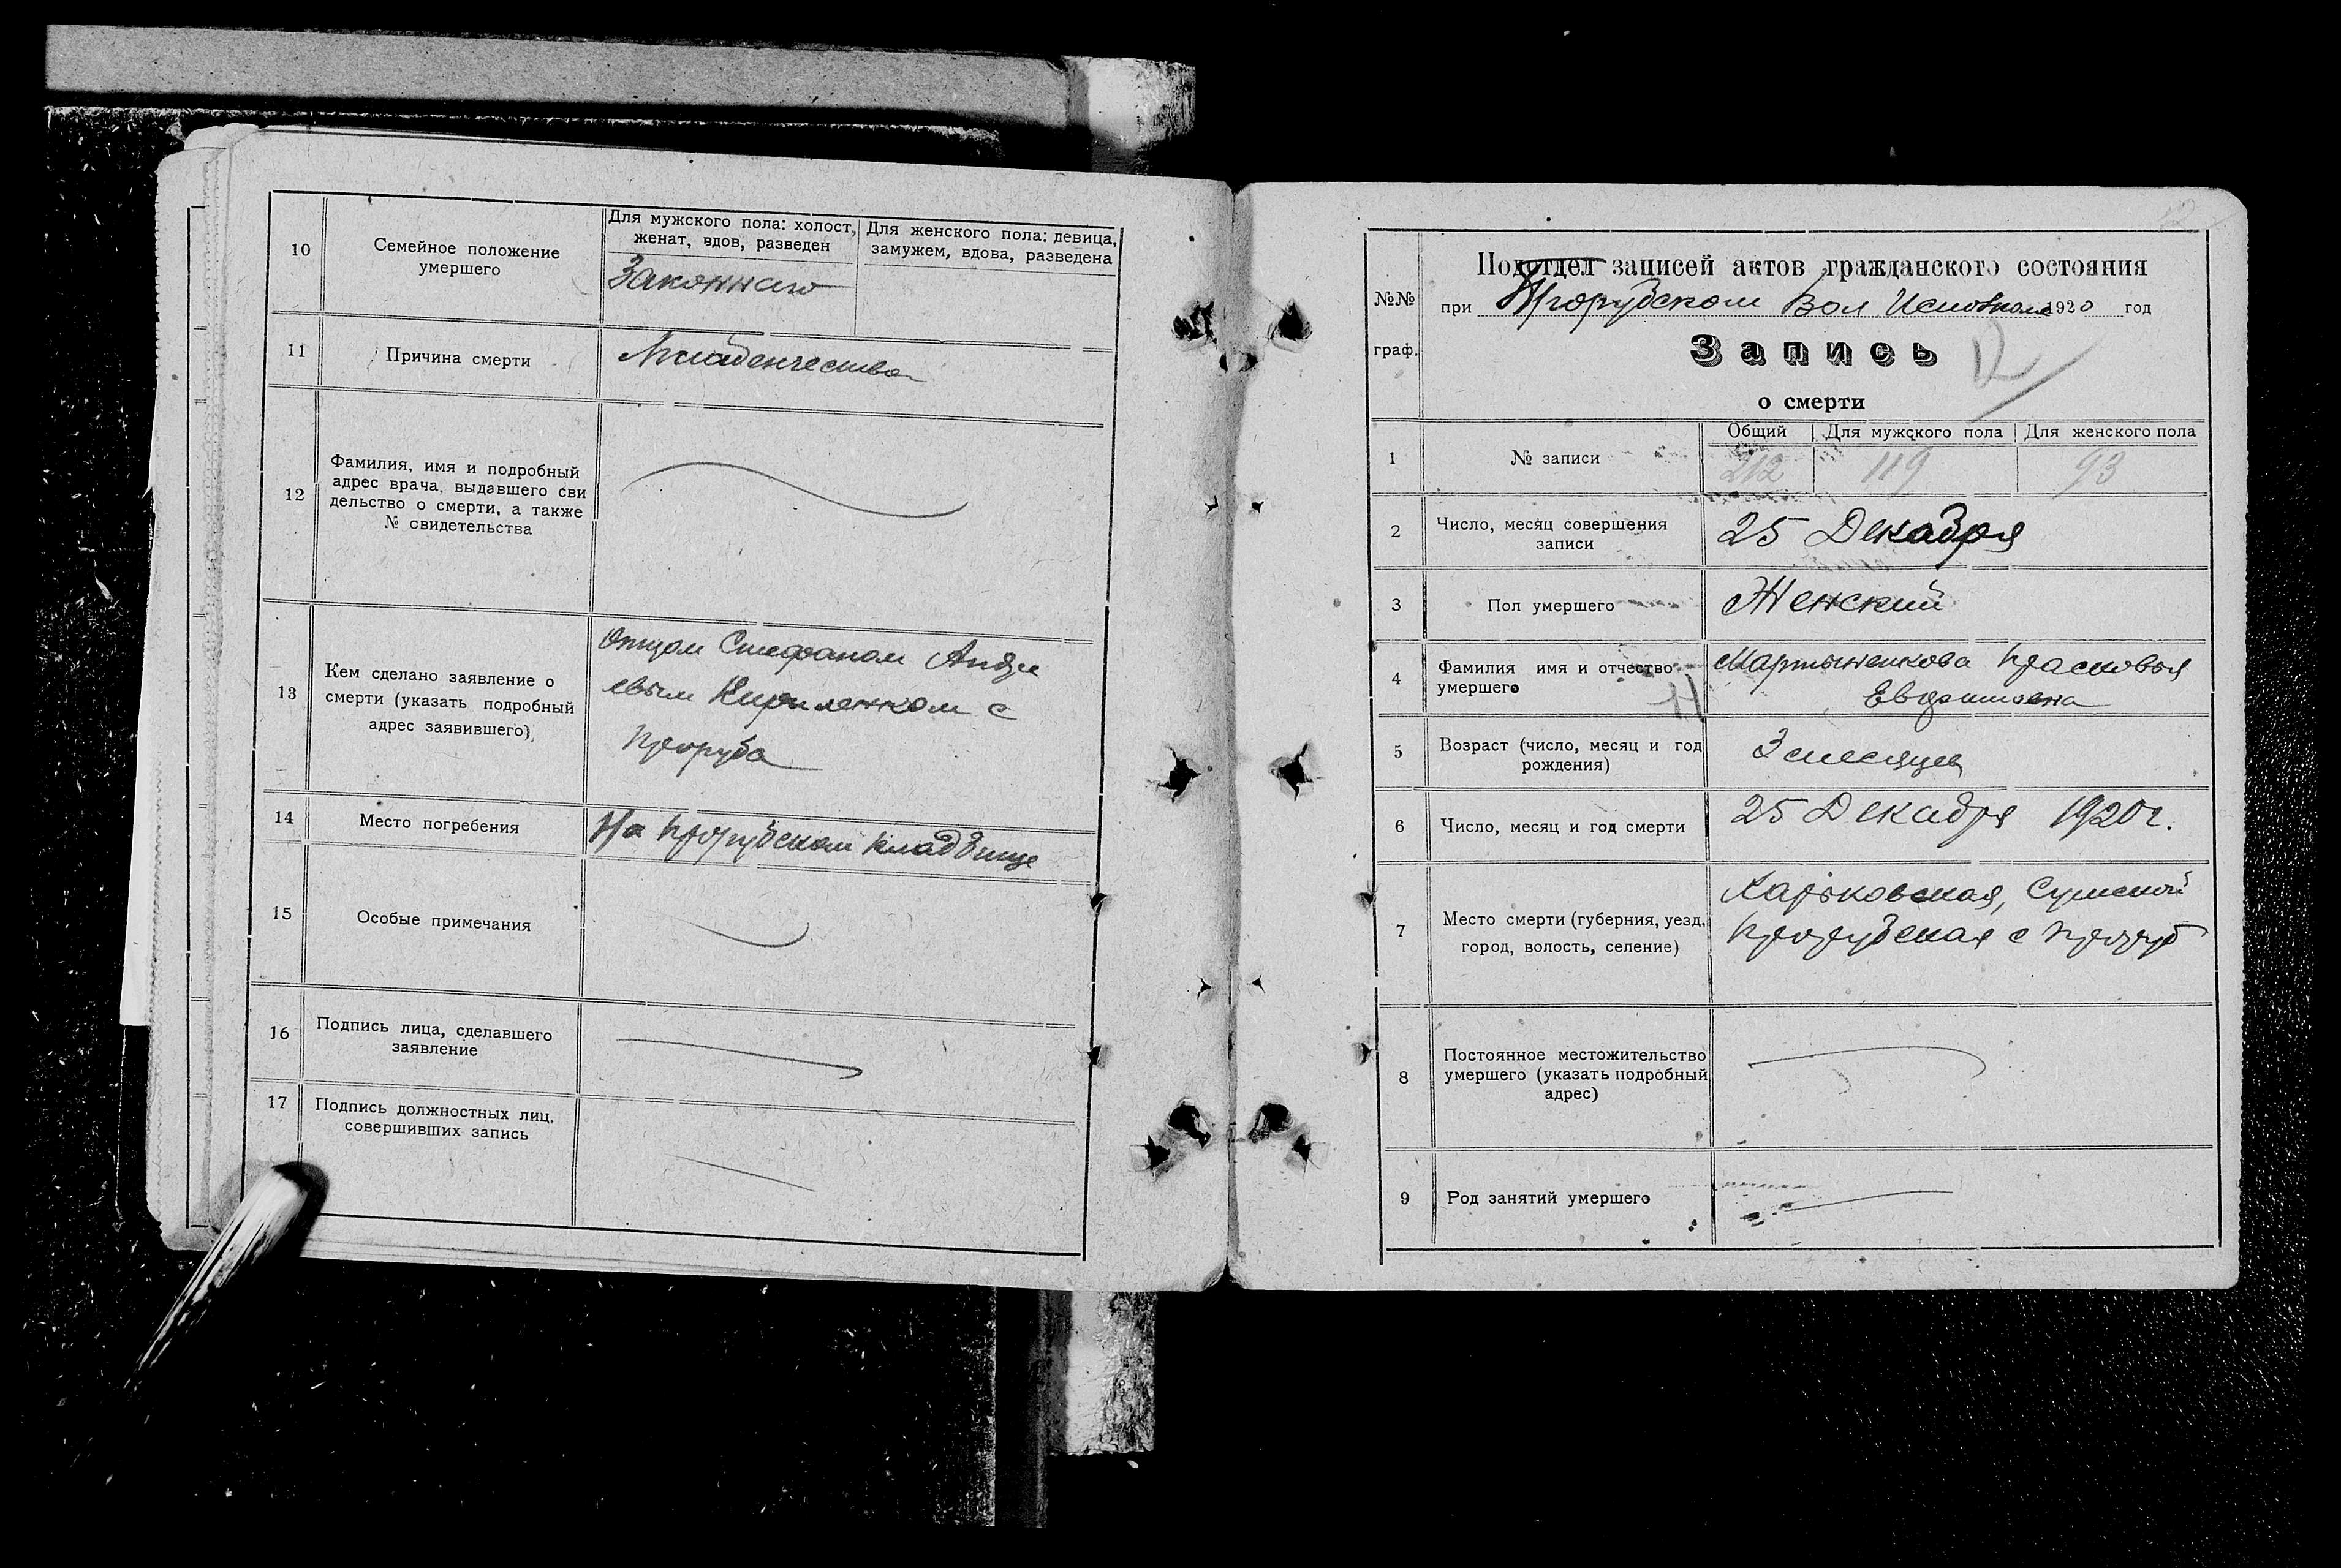 10
Семейное положение
умершего
Для мужского пола: холост,
женат, вдов, разведен
Для женского пола: девица,
замужем, вдова, разведена
Законнаго
11
Причина смерти
Младенчества
12
Фамилия, имя и подробный
адрес врача, выдавшего сви
дельство о смерти, а также
№ свидетельства
13
Кем сделано заявление о
смерти (указать подробный
адрес заявившего)
Отцом Стефаном Андре
евым Кириленком с
Проруба
14
Место погребения
На Прорубском кладбище
15
Особые примечания
16
Подпись лица, сделавшего
заявление
17
Подпись должностных лиц,
совершивших запись
№№
граф.
Подотдел записей актов гражданского состояния
при Прорубском Вол Исполкоме 1920 год
Запись
о смерти
1
№ записи
Общий
Для мужского пола
Для женского пола
212
119
93
2
Число, месяц совершения
записи
25 Декабря
3
Пол умершего
Женский
4
Фамилия имя и отчество
умершего
Мартыненкова Прасковья
5
Возраст (число, месяц и год
рождения)
3 месяцев
6
Число, месяц и год смерти
25 Декабря 1920 г.
7
Место смерти (губерния, уезд,
город, волость, селение)
Харьковская, Сумской
Прорубская с Проруб
8
Постоянное местожительство
умершего (указать подробный
адрес)
9
Род занятий умершего